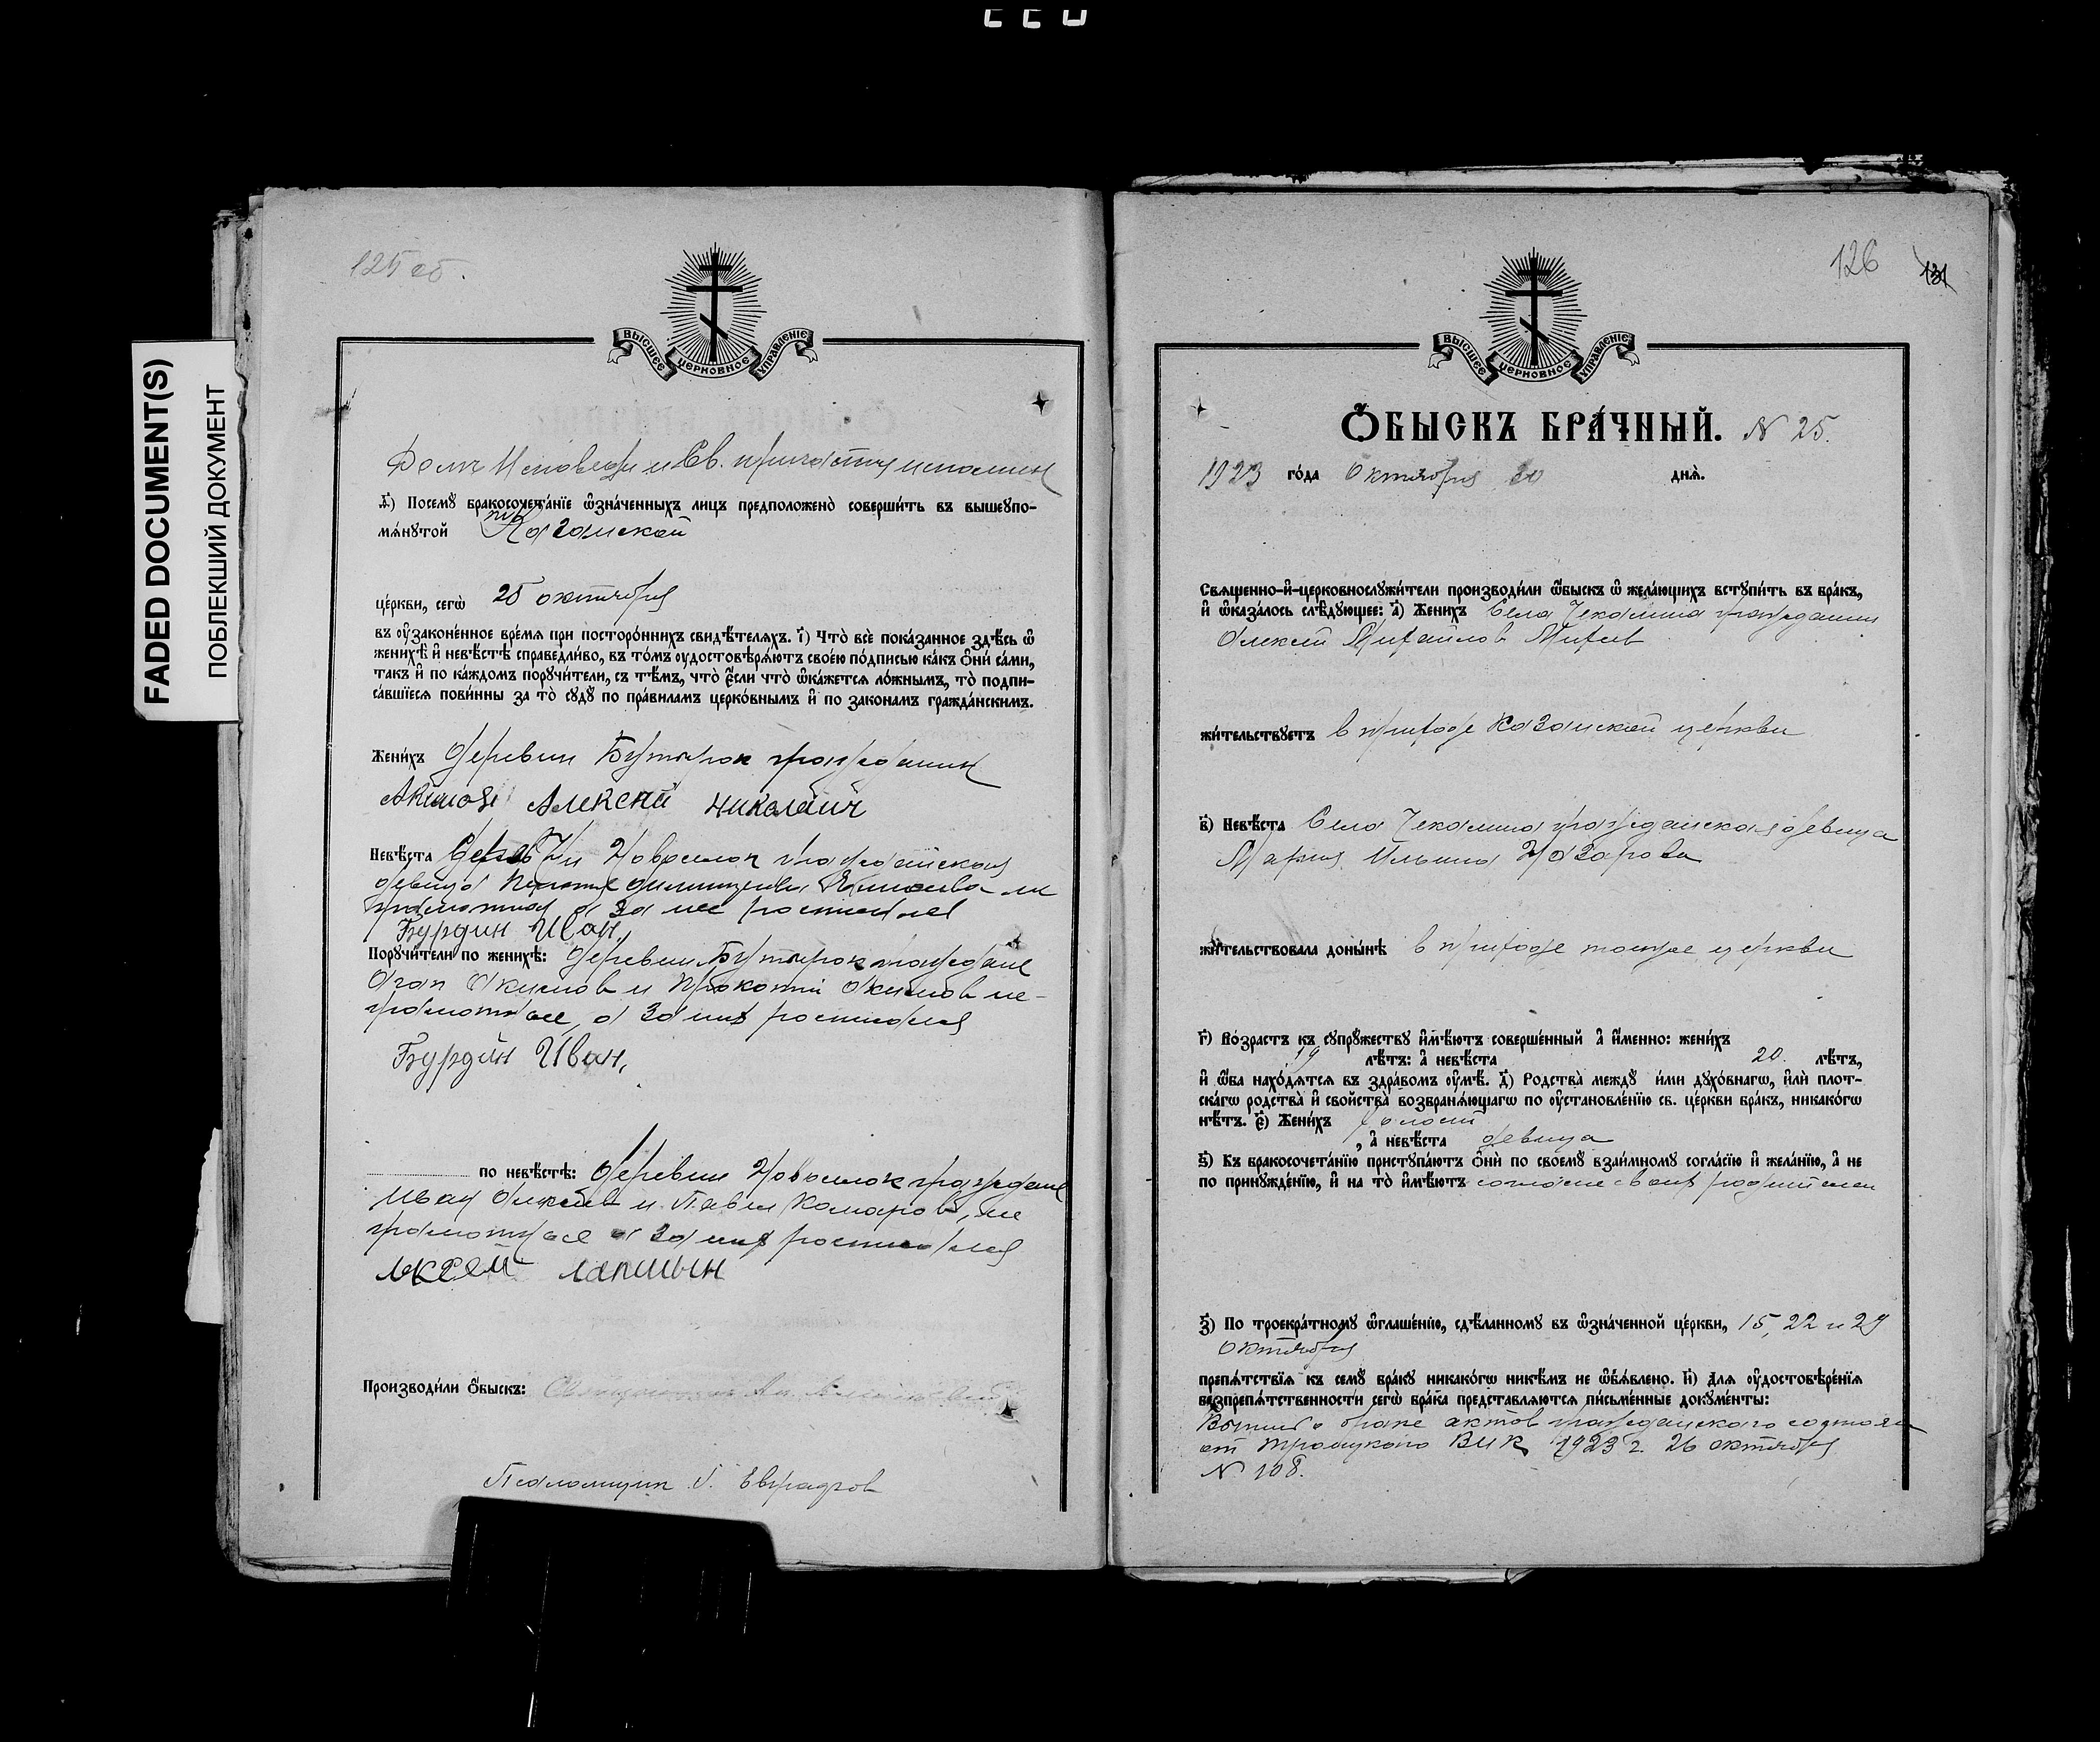 FADED DOCUMENT(S)
ПОБЛЕКШИЙ ДОКУМЕНТ
125 об.
ВЫСШЕЕ ЦЕРКОВНОЕ УПРАВЛЕНІЕ
Долг Исповеди и Св. причастия исполнен
Ѳ҃) Посемꙋ̀ бракосочета́нїе ѡ҆зна́ченныхъ лицъ предположено̀ соверши́ть въ вышеꙋпо-
мѧ́нꙋтой Казанской
це́ркви, сегѡ̀ 25 октября
въ ᲂу҆зако́ненное вре́мѧ при посторо́ннихъ свидѣ́телѧхъ. І҃) Что̀ всѐ пока́занное здѣ́сь ѡ҆
женихѣ̀ и҆ невѣ́стѣ справедли́во, въ то́мъ ᲂу҆достовѣрѧ́ютъ свое́ю по́дписью ка́къ ѻ҆нѝ са́ми,
та́къ и҆ по ка́ждомъ порꙋчи́тели, съ тѣ́мъ, что̀ є҆́сли что̀ ѡ҆ка́жетсѧ ло́жнымъ, то̀ подпи-
са́вшїесѧ пови́нны за то̀ сꙋдꙋ̀ по пра́виламъ церко́внымъ и҆ по зако́намъ гражда́нскимъ.
Жени́хъ деревни Бутырок гражданин
Акимов Алексей николаич
Невѣ́ста деревни Новоселок гражданская
девица не
грамотная а за нее расписался
Бурдин Иван,
Порꙋчи́тели по женихѣ̀: деревни Бутырок граждане
Агап Акимов и Прокопий Акимов не-
грамотные, а за них расписался
Бурдин Иван,
по невѣ́стѣ: деревни Новоселок граждане
Иван и Павел Комаров, не
грамотные а за них расписался
лапшын
Производи́ли ѻ҆́быскъ:
Псаломщик
126
131
ВЫСШЕЕ ЦЕРКОВНОЕ УПРАВЛЕНІЕ
Ѻ҆́БЫСКЪ БРА́ЧНЫЙ. N 25.
1923 го́да Октября 30 днѧ̀.
Свѧще́нно-и҆-церковнослꙋжи́тели производи́ли ѡ҆́быскъ ѡ҆ жела́ющихъ встꙋпи́ть въ бра́къ,
и҆ ѡ҆каза́лось слѣ́дꙋющее: а҃) Жени́хъ Села Чекалина гражданин
Алексей Михайлов
жи́тельствꙋетъ в приходе Казанской церкви
в҃) Невѣ́ста Села Чекалина гражданская девица
Мария Ильина Назарова
жи́тельствовала доны́нѣ в приходе тойже церкви
г҃) Во́зрастъ къ сꙋпрꙋ́жествꙋ и҆мѣ́ютъ соверше́нный а҆ и҆́менно: жени́хъ
19 лѣ́тъ: а҆ невѣ́ста 20 лѣ́тъ,
и҆ ѡ҆́ба нахо́дѧтсѧ въ здра́вомъ ᲂу҆мѣ̀. д҃) Родства̀ междꙋ̀ и́ми дꙋхо́внагѡ, и҆лѝ плот-
ска́гѡ родства̀ и҆ свойства̀ возбранѧ́ющагѡ по ᲂу҆становле́нїю св. це́ркви бра́къ, никако́гѡ
нѣ́тъ. є҃) Жени́хъ холост
, а҆ невѣ́ста девица
ѕ҃) Къ бракосочета́нїю пристꙋпа́ютъ ѻ҆нѝ по своемꙋ̀ взаи́мномꙋ согла́сїю и҆ жела́нїю, а҆ не
по принꙋжде́нїю, и҆ на то̀ и҆мѣ́ютъ согласие своих родителей
з҃) По троекра́тномꙋ ѡ҆глаше́нїю, сдѣ́ланномꙋ въ ѡ҆зна́ченной це́ркви, 15, 22 и 29
октября
препѧ́тствїѧ къ семꙋ̀ бра́кꙋ никако́гѡ никѣ́мъ не ѡ҆б̾ѧ́влено. и҃) Длѧ ᲂу҆достовѣре́нїѧ
безпрепѧ́тственности сегѡ̀ бра́ка представлѧ́ютсѧ пи́сьменные докꙋме́нты:
о браке актов гражданского состоян
от Троицкого ВИК 1923 г. 26 октября
N 108.